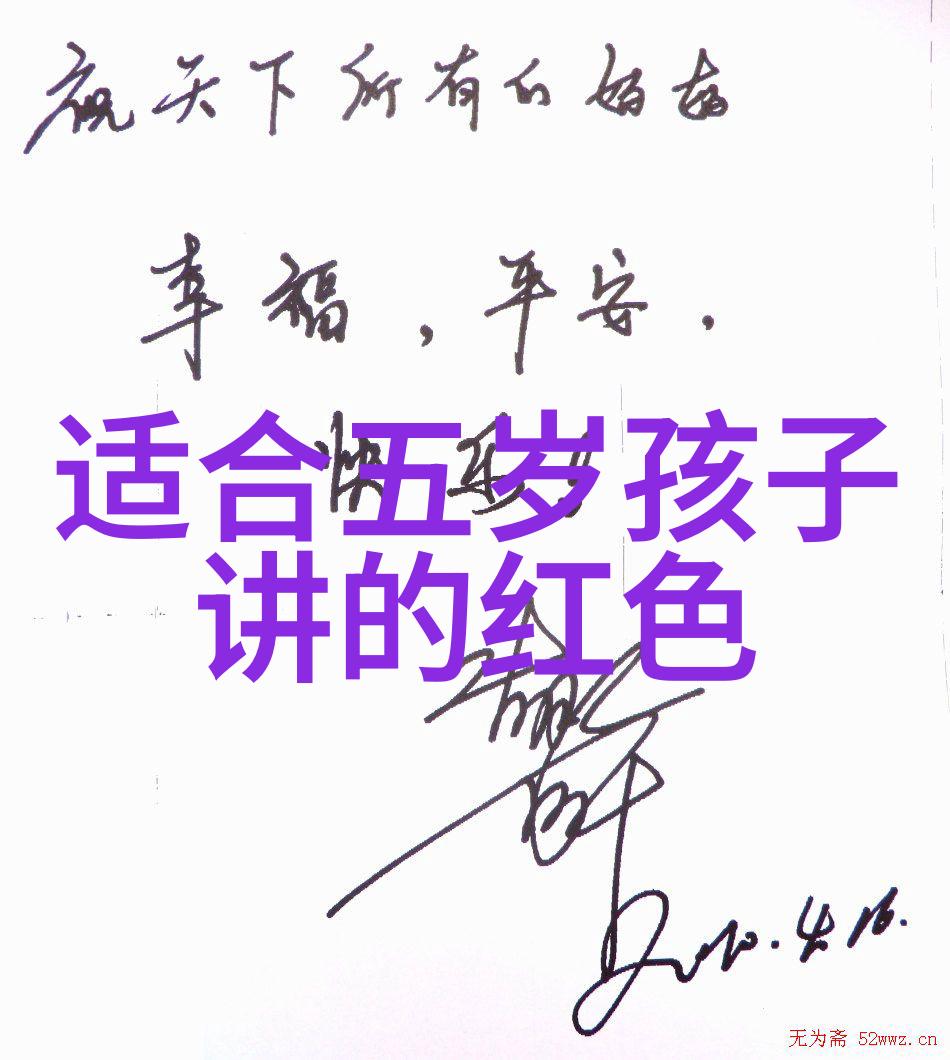 祝天下所有的妈妈
幸福，平安，
快乐！
适合五岁孩子
讲的红色
2010.4.16.
无为斋 52wwz.cn